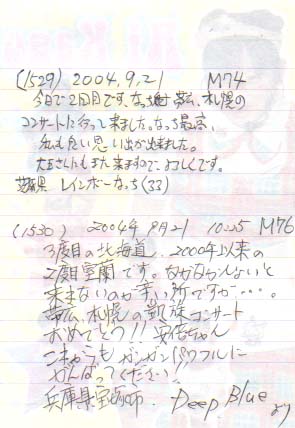 (1529) 2004.9.21 M74
今日で2回目です。なっち 帯広、札幌の
コンサートに行って来ました。なっち最高、
私も良い思い出が出来ました。
また来ますので、よろしくです。
レインボーなっち(33)
(1530) 2004年9月21日 10:25 M76
3度目の北海道、2000年以来の
2度目室蘭です。なかなかこんないと
来れないのが辛い所ですが・・・。
帯広、札幌の凱旋コンサート
おめでとう!!安倍ちゃん
これからもガンガンパワフルに
がんばってください!!
兵庫県宝塚市. Deep Blue より